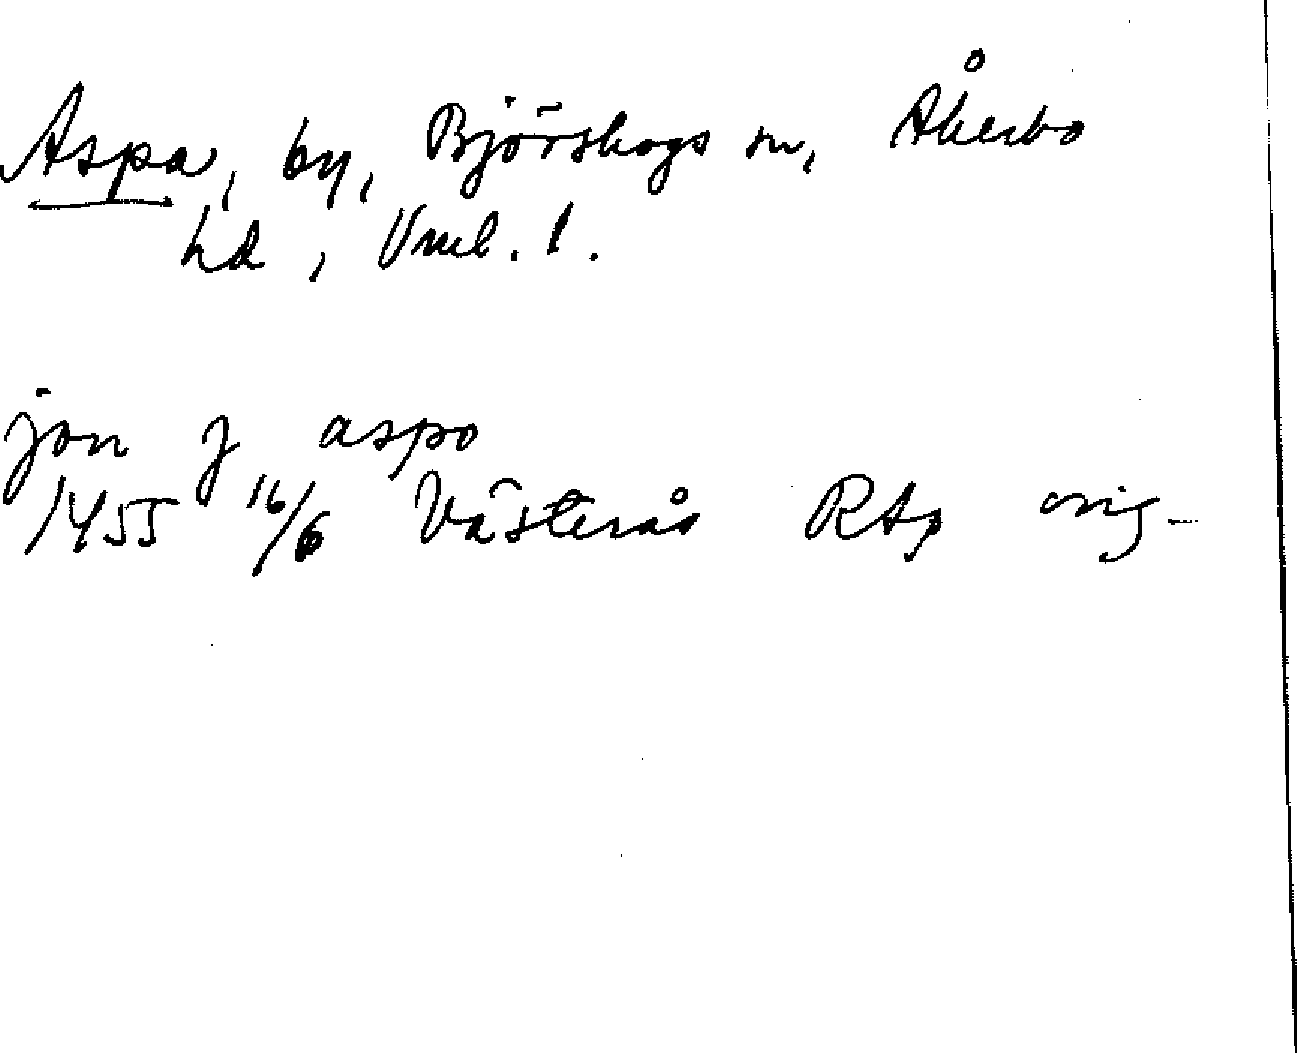 Aspa, by, Björskogs sn, Åkerbo
hd, Vml. l.
jon j aspo
1455 16/6 Västerås RAp orig.